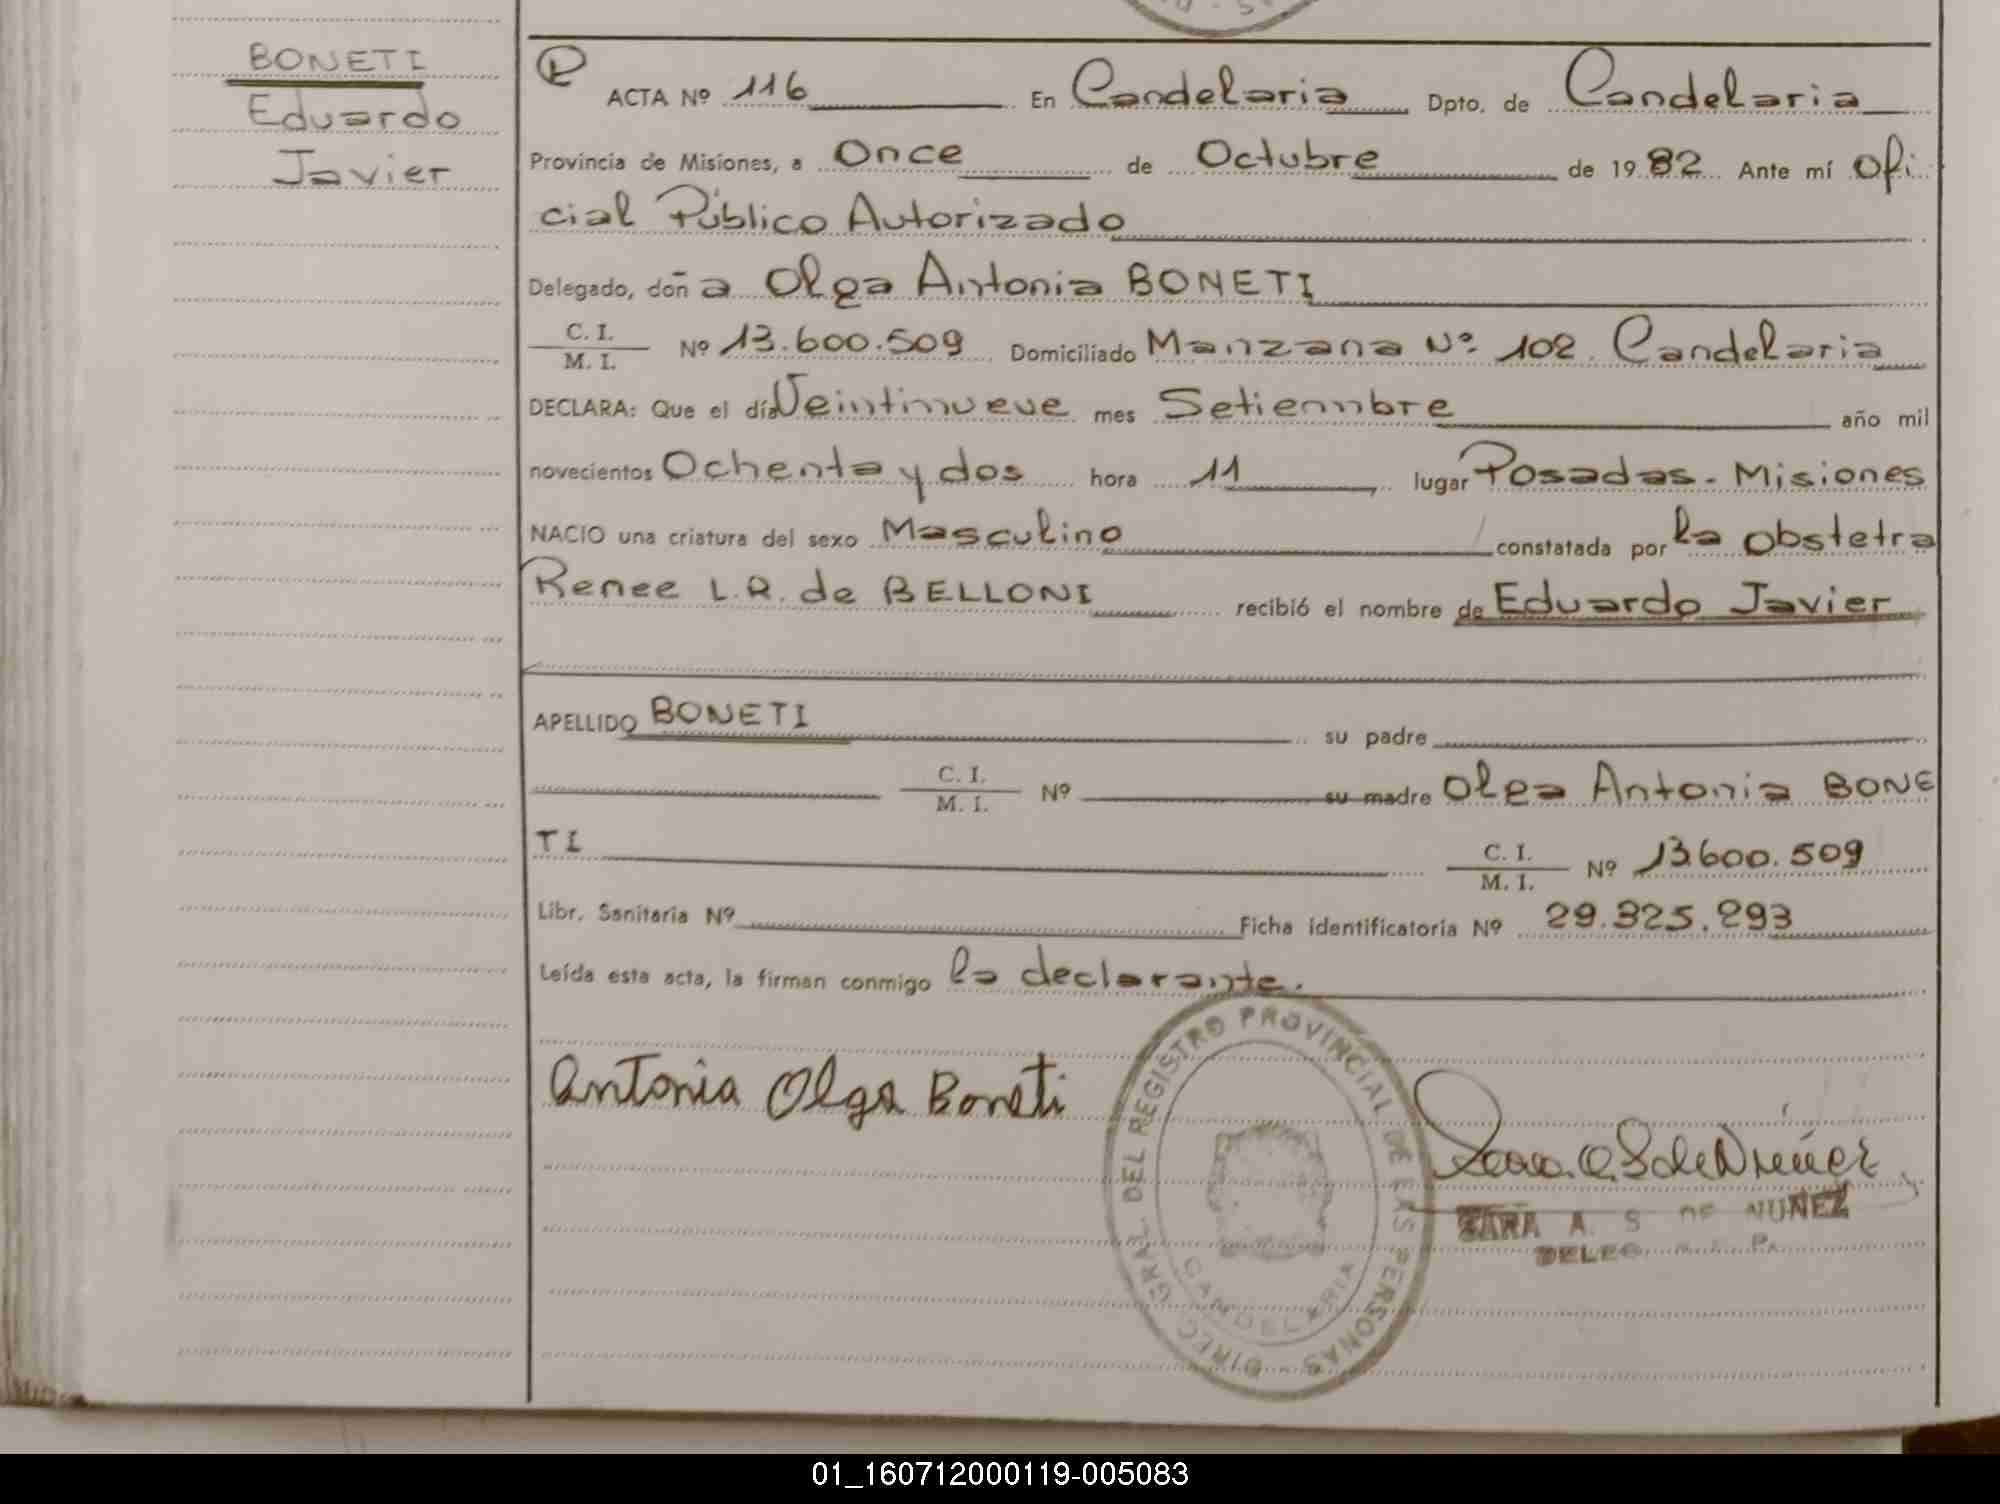 BONETI
Eduardo
Javier
ACTA Nº 116 En Candelaria Dpto. de Candelaria
Provincia de Misiones, a Once de Octubre de 1982 Ante mí Ofi
cial Público Autorizado
Delegado, doña Olga Antonia BONETI
C. I.
M. I. Nº 13.600.509 Domiciliado Manzana Nº 102. Candelaria
DECLARA: Que el día Veintinueve mes Setiembre año mil
novecientos Ochenta y dos hora 11 lugar Posadas - Misiones
NACIO una criatura del sexo Masculino constatada por la obstetra
Renee L.R. de BELLONI recibió el nombre de Eduardo Javier
APELLIDO BONETI su padre
C. I.
M. I. Nº su madre Olga Antonia BONE
TI C. I.
M. I. Nº 13.600.509
Libr. Sanitaria Nº Ficha identificatoria Nº 29.325.293
Leída esta acta, la firman conmigo la declarante.
Antonia Olga Boneti
DIREC. GRAL. DEL REGISTRO PROVINCIAL DE LAS PERSONAS
CANDELARIA
Sara A. S. de Núñez
SARA A. S. DE NUÑEZ
01_160712000119-005083